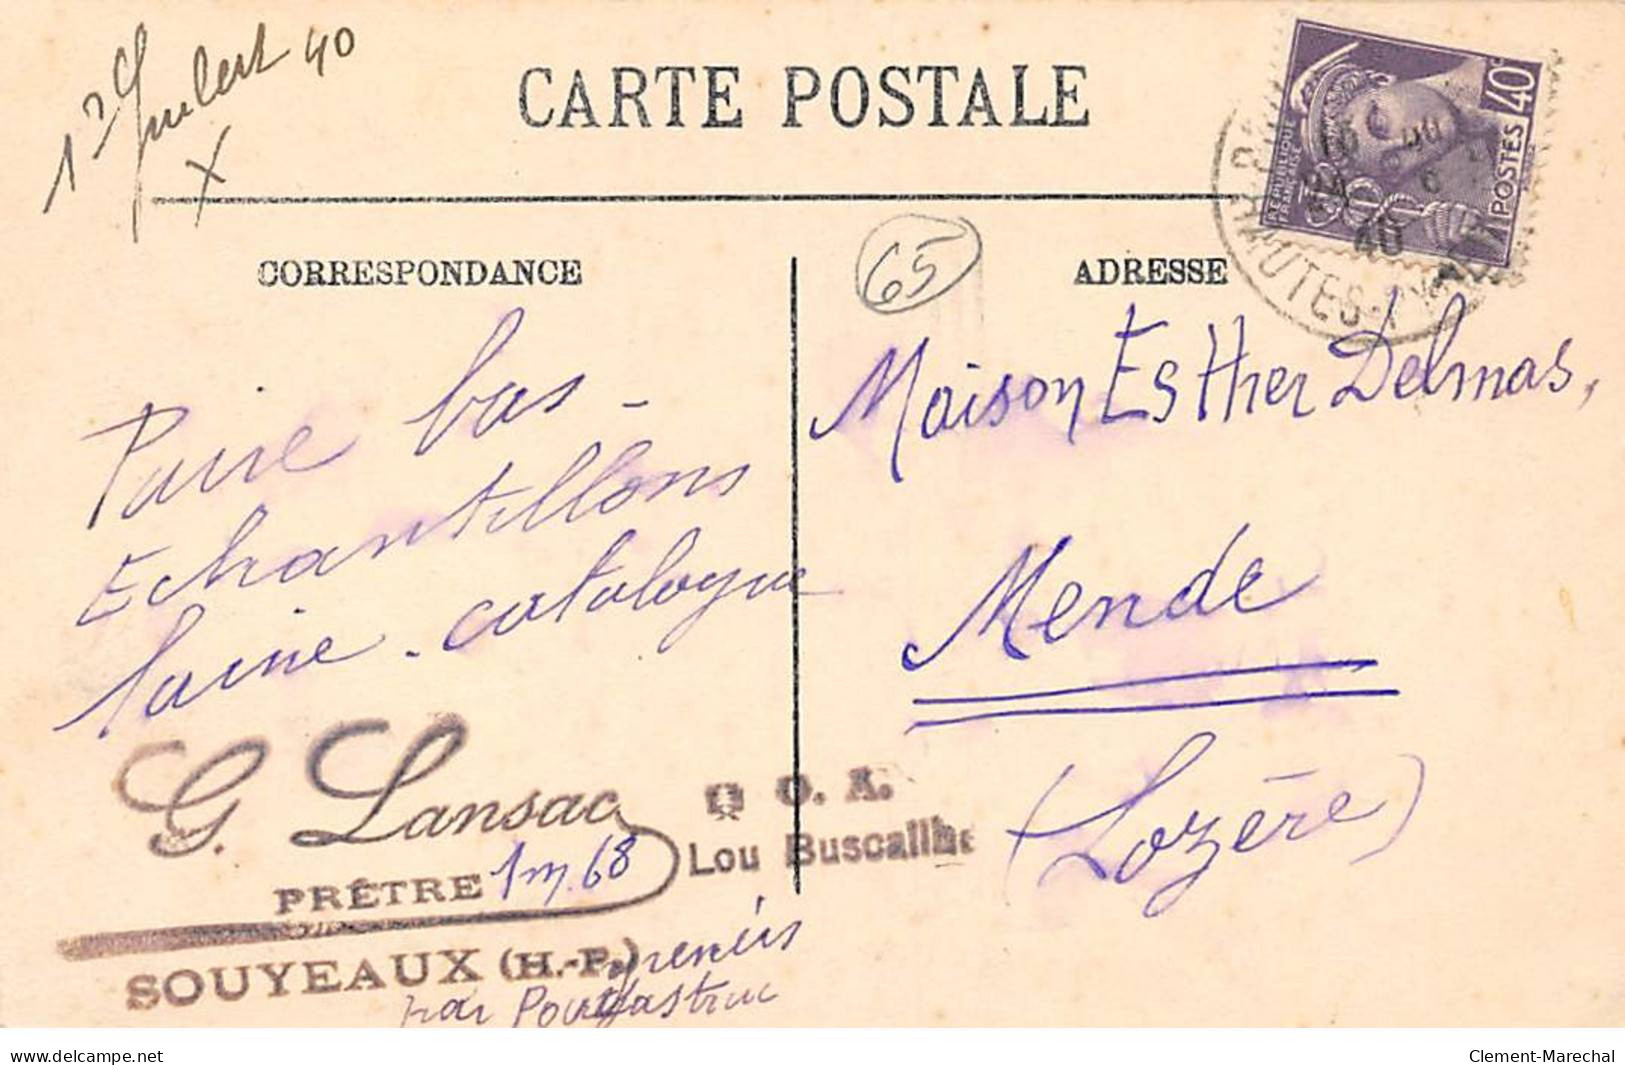 1er Juillet 40
X
CARTE POSTALE
REPUBLIQUE
FRANCAISE
POSTES
40c
40
HAUTES-PY
65
CORRESPONDANCE
ADRESSE
Paire bas -
Echantillons
laine - catalogue
Maison Esther Delmas,
Mende
(Lozère)
G. Lansac
PRÊTRE
1m,68
SOUYEAUX (H.-P.)
O. A.
Lou Buscailhet
par Pouyastruc
www.delcampe.net
Clement-Marechal